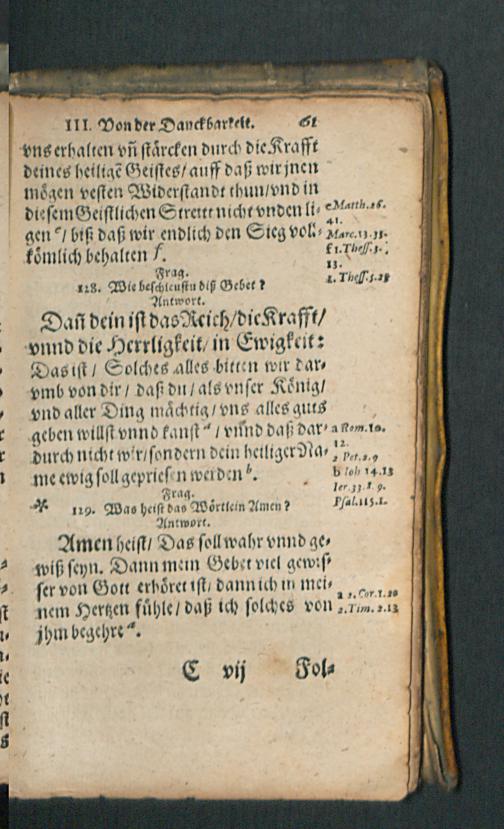 III. Von der Danckbarkeit. 61
vns erhalten vñ stärcken durch die Krafft
deines heiligẽ Geistes/ auff daß wir jnen
mögen vesten Widerstandt thun/ vnd in
diesem Geistlichen Streitt nicht vnden li-
gen e/ biß daß wir endlich den Sieg voll-
kömlich behalten f.
e Matth. 26.
41.
Marc. 13. 33.
f 1. Thess. 3.
13.
1. Thess. 5. 23
Frag.
128. Wie beschleustu diß Gebet?
Antwort.
Dañ dein ist das Reich/ die Krafft/
vnnd die Herrligkeit/ in Ewigkeit:
Das ist/ Solches alles bitten wir dar-
vmb von dir/ daß du/ als vnser König/
vnd aller Ding mächtig/ vns alles guts
geben willst vnnd kanst a/ vnnd daß dar-
durch nicht wir/ sondern dein heiliger Na-
me ewig soll gepriesen werden b.
a Rom. 10.
12.
2 Pet. 2. 9
b Ioh 14. 13
Ier. 33. 8. 9.
Psal. 115. 1.
Frag.
129. Was heist das Wörtlein Amen?
Antwort.
Amen heist/ Das soll wahr vnnd ge-
wiß seyn. Dann mein Gebet viel gewis-
ser von Gott erhöret ist/ dann ich in mei-
nem Hertzen fühle/ daß ich solches von
jhm begehre a.
a 2. Cor. 1. 20
2. Tim. 2. 13
C vij Fol-